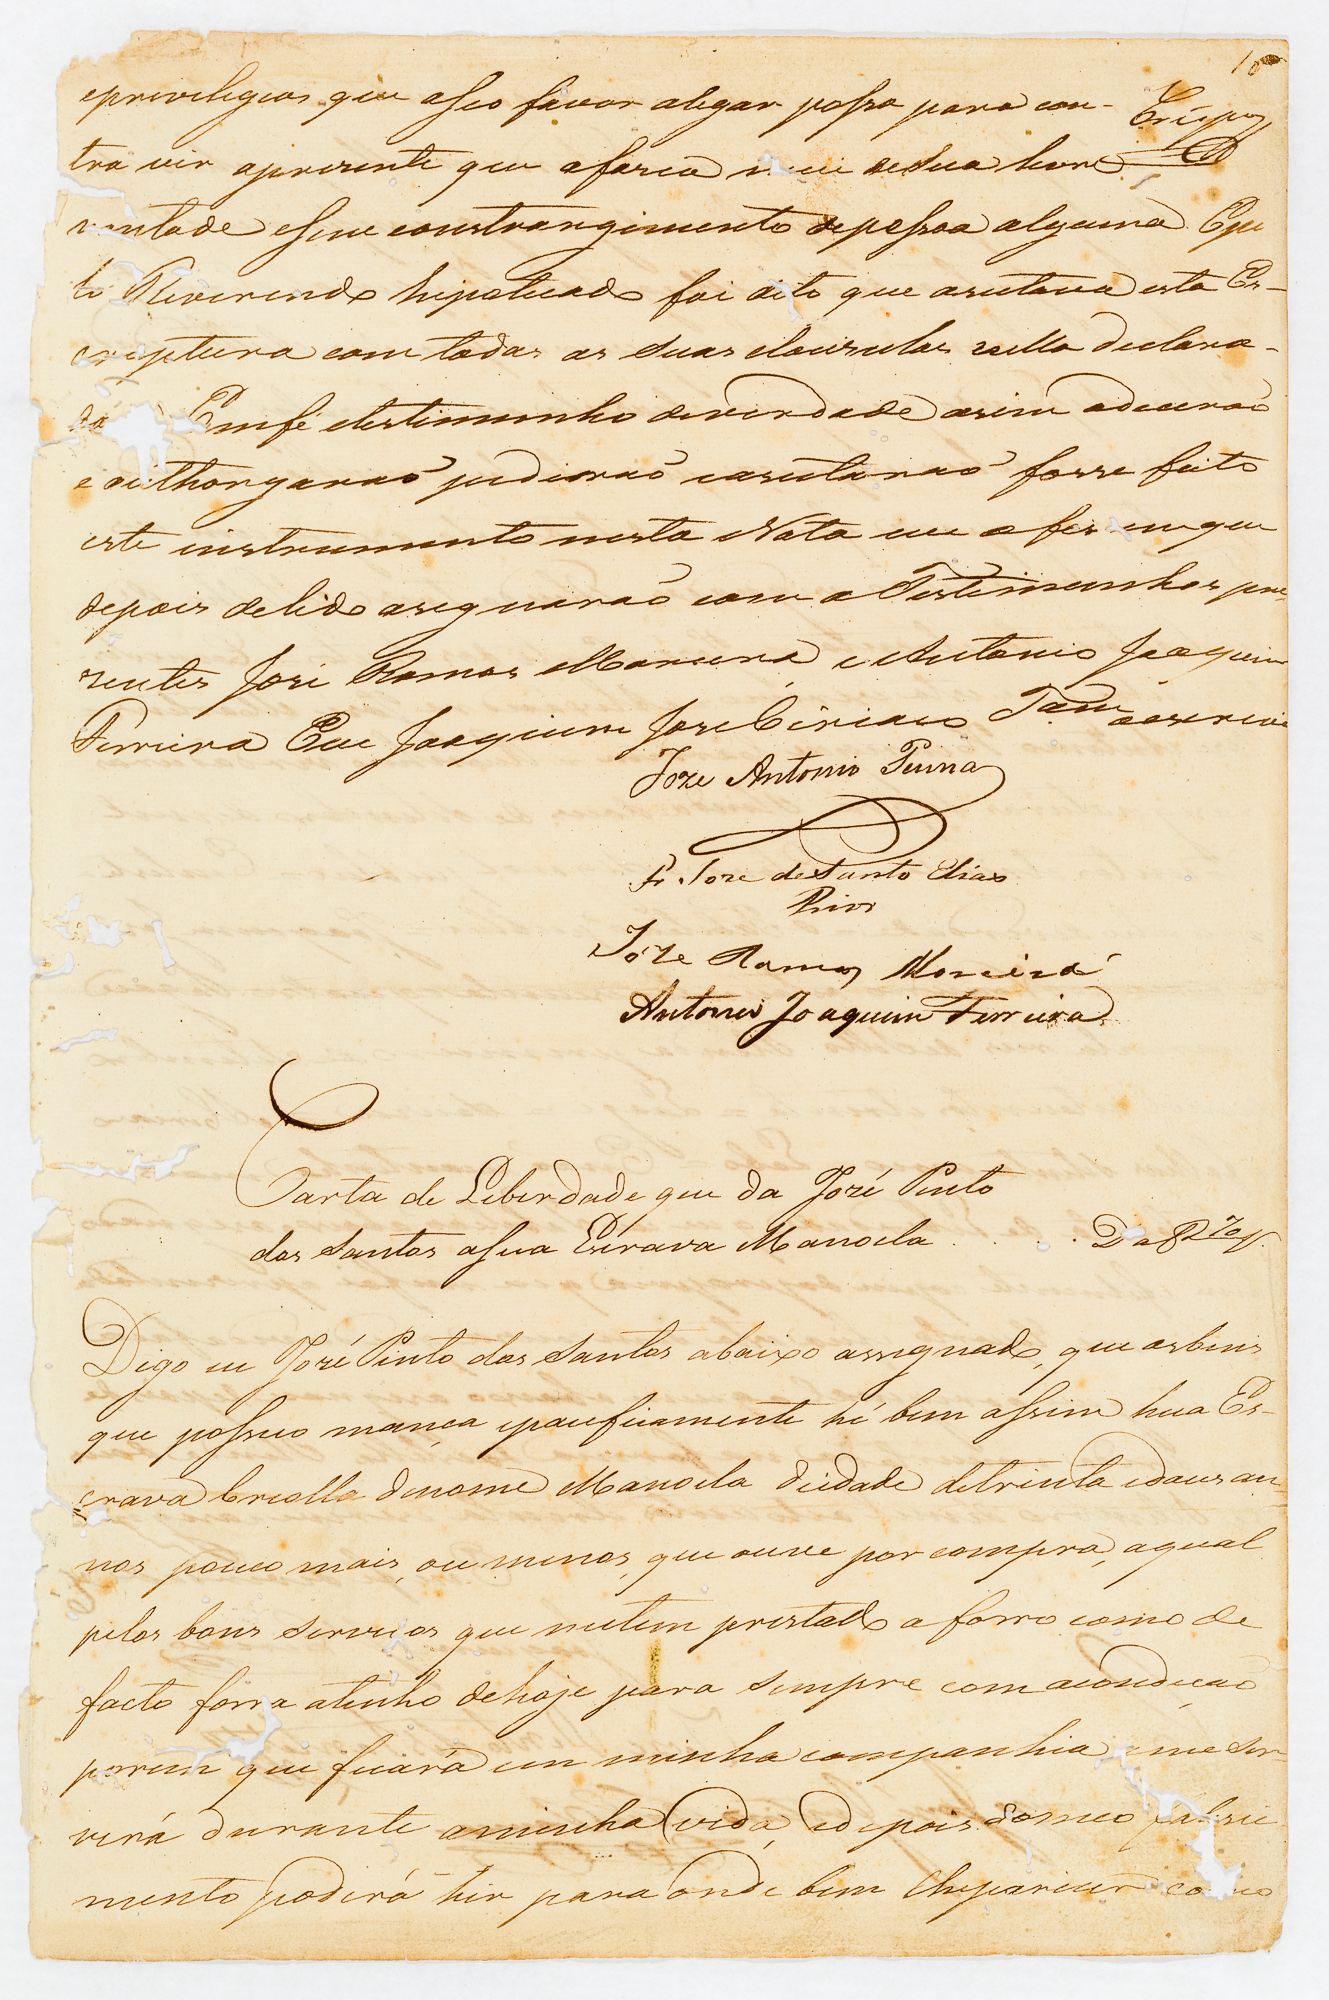 10
epreveligios que aseo favor alegar possa para con-
tra vir aprezente que afazia de sua livre
vontade esem constrangimento depessoa alguma Epe
lo Reverendo hipotecado foi dito que aseitava esta Es-
criptura com todas as suas clauzulas nella declara-
das Emfé etestimunho deverdade asim adicerão
e outhorgarão pedirão easeitarão fosse feito
este instrumento nesta Nota que o fes em que
depois delido asignarão com a Testemunhas pre
zentes José Ramos Moreira e Antonio Joaquim
Ferreira Eu Joaquim Jose Ciriaco Tam oescrevi
Joze Antonio Penna
Fr. Joze de Santo Elias
Prior
Joze Ramos Moreira
Antonio Joaquim Ferreira
Carta de Liberdade que da José Pinto
dos Santos asua Escrava Manoela
Digo eu José Pinto dos Santos abaixo assignado, que osbens
que possuo mança epacificamente hé bem assim hua Es-
crava Creolla denome Manoela deidade detrinta edous an
nos pouco mais, ou menos, que ouve por compra, aqual
pelos bons serviços que metem prestado aforro como de
facto forra atenho dehoje para sempre com acondição
porem que ficará em minha companhia eme ser
virá durante aminha vida, edepois domeo falesci
mento poderá hir para onde bem lheparecer como